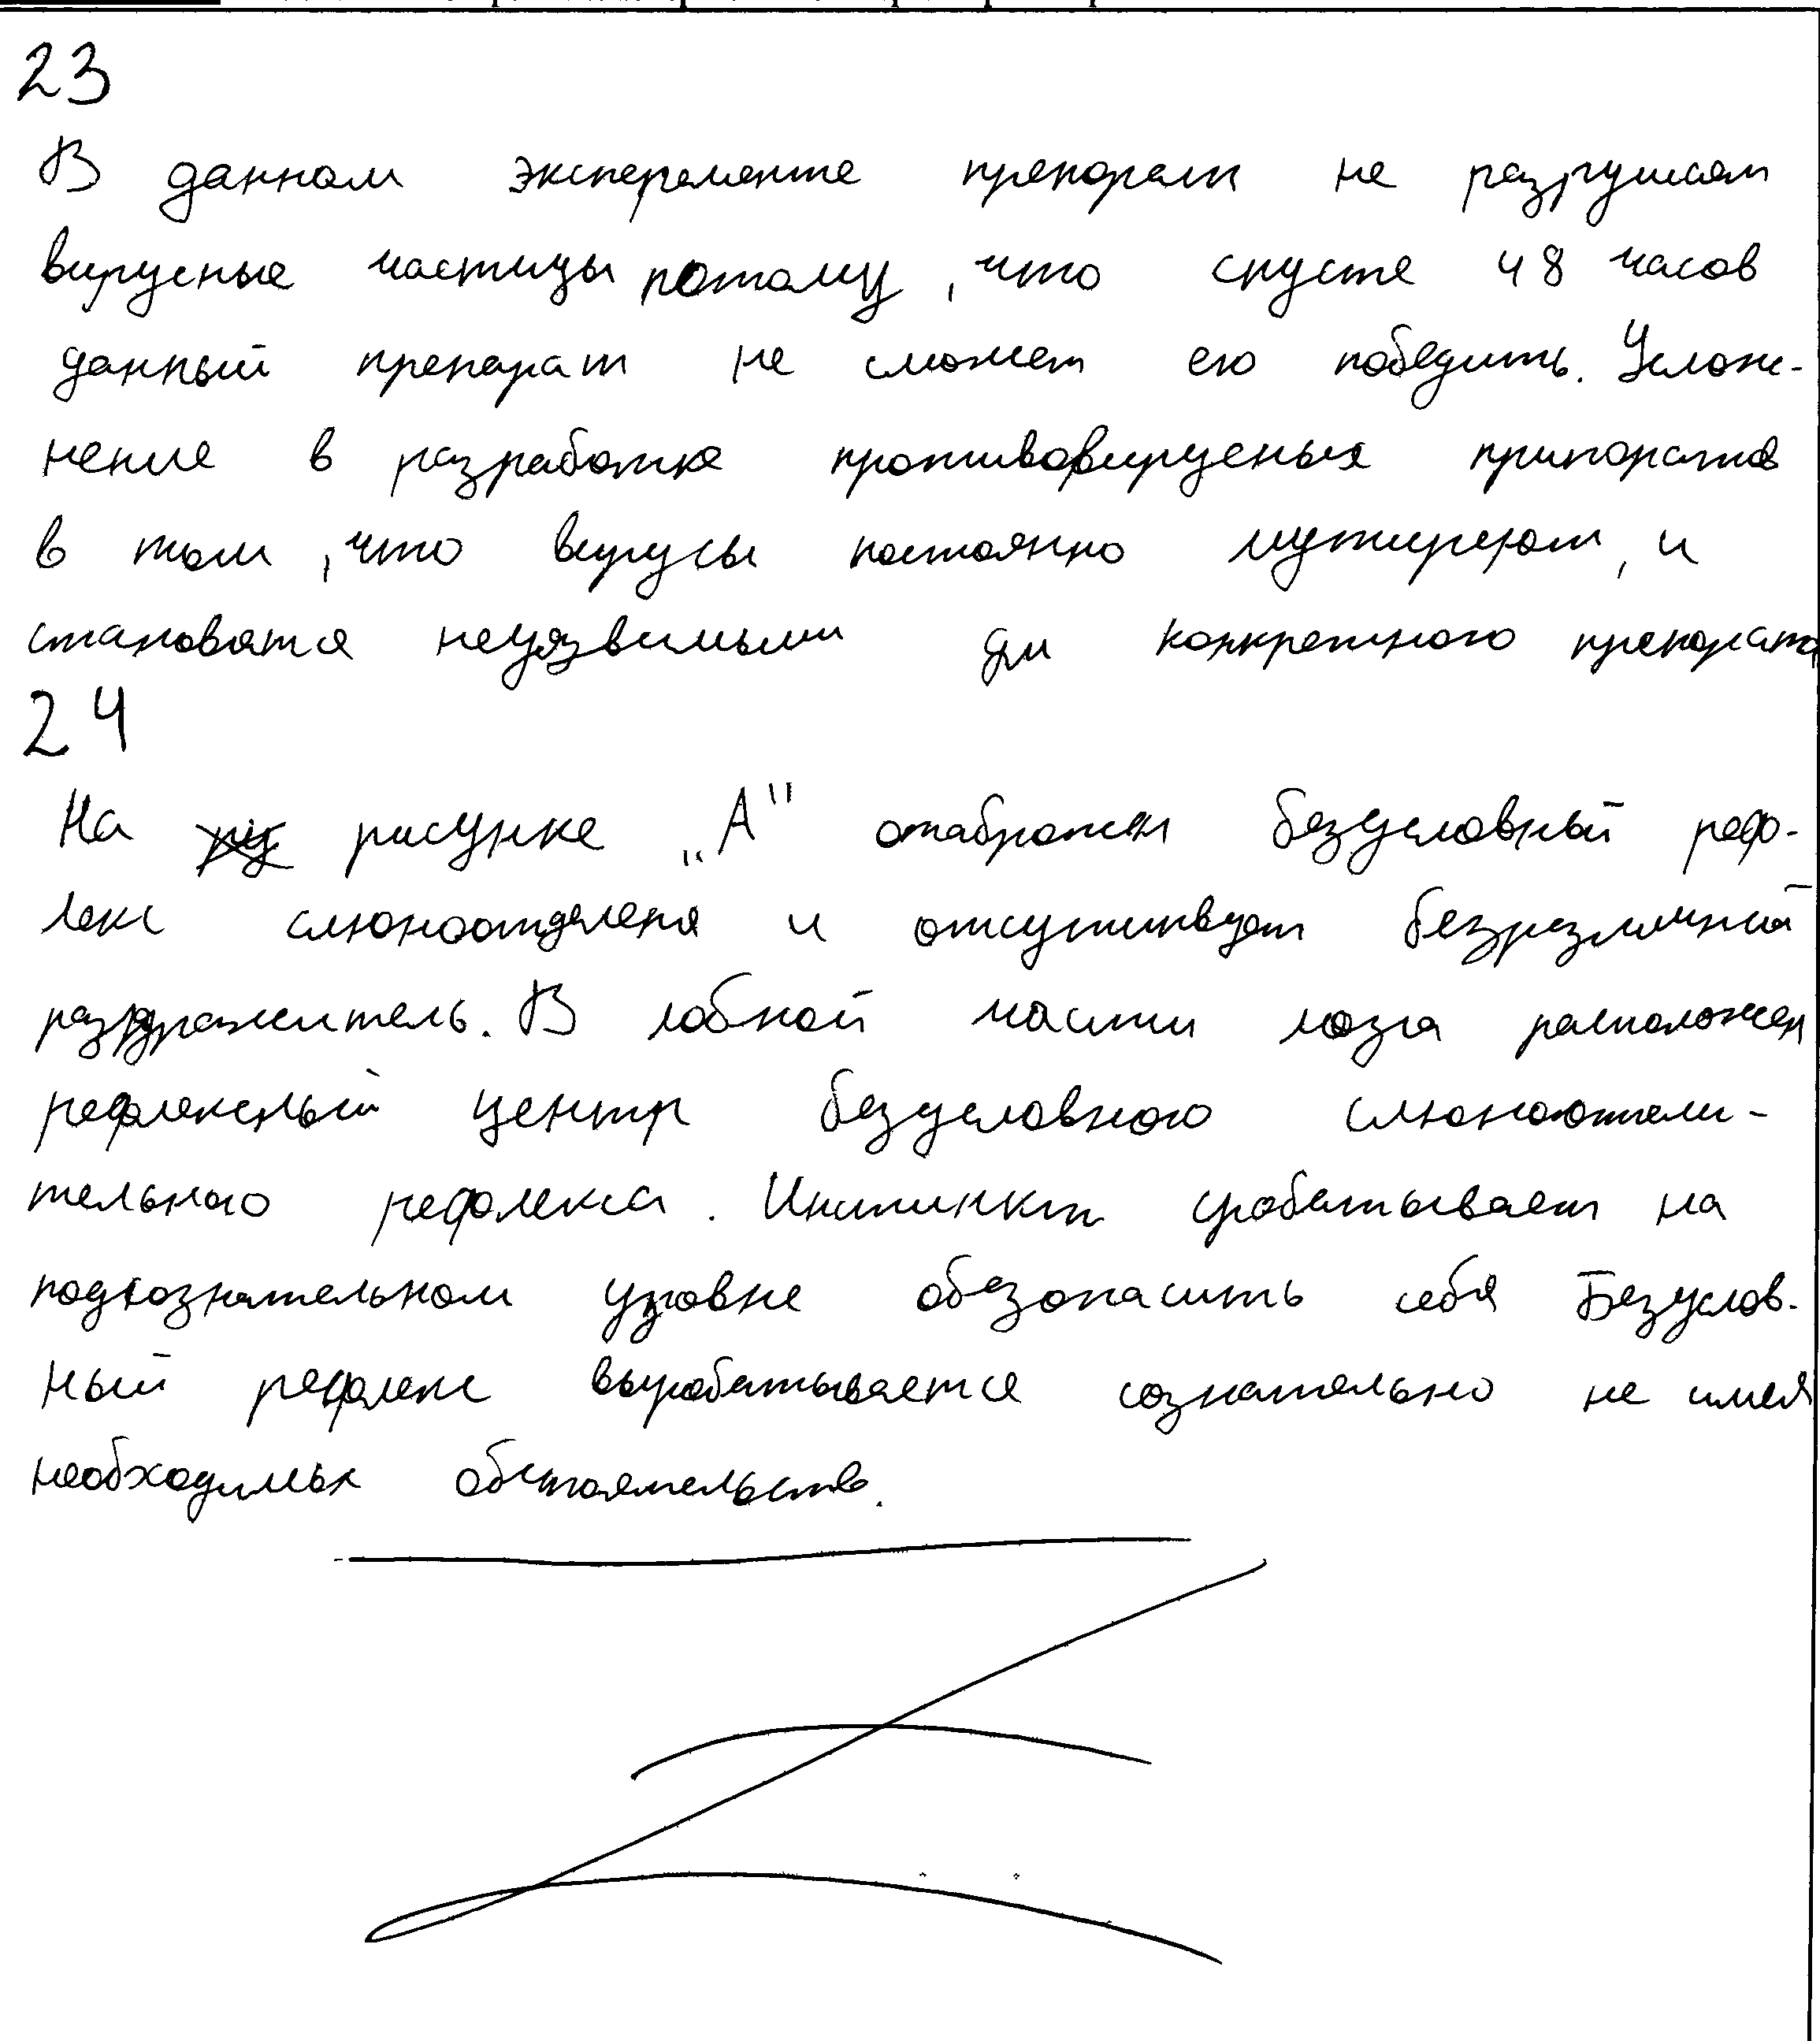 23
В данном эксперементе препорат не разрушает
вирусные частицы потому, что спустя 48 часов
данный препарат не сможет его победить. Услож-
нение в разработке противовирусных припоратов
в том, что вирусы постоянно мутируют, и
становятся неуязвимыми для конкретного препората
24
На рисунке „А" отаброжен безусловный реф-
лекс слюноотделеня и отсутствует безразличный
раздражитель. В лобной части мозга расположен
рефлексный центр безусловного слюноотели-
тельного рефлекса. Инстинкт срабатывает на
подсознательном уровне обезопасить себя Безуслов-
ный рефлекс вырабатывается сознательно не имея
необходимых обстоятельств.